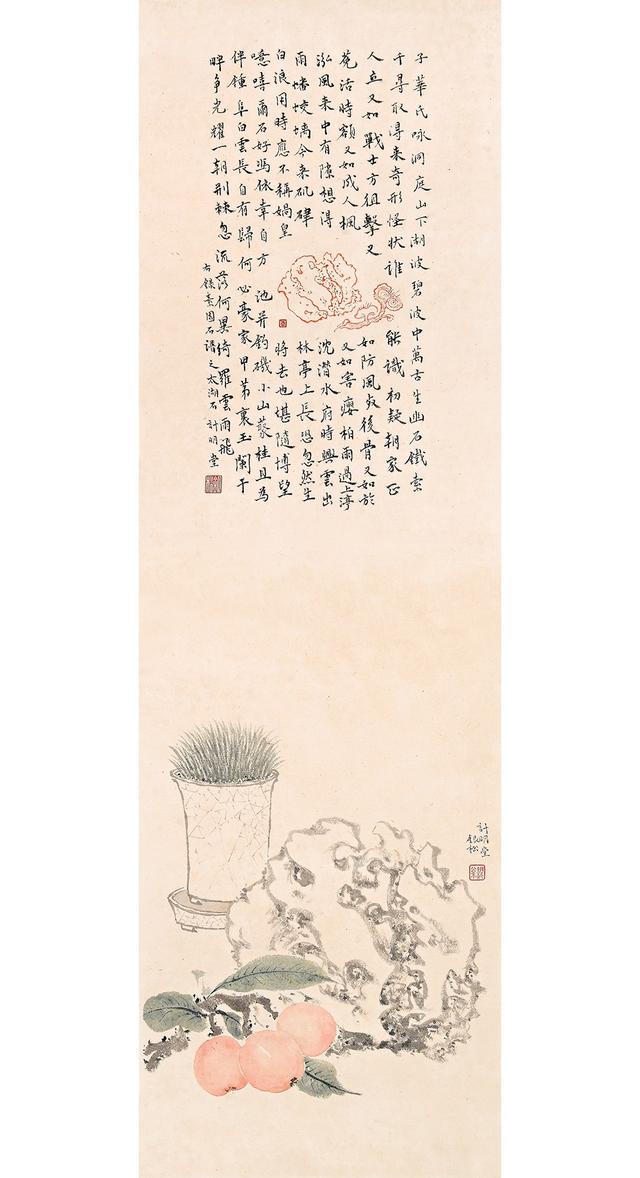 子華氏咏洞庭山下湖波碧波中萬古生幽石鐵索
千尋取得来奇形怪状誰能識初疑朝家正
人立又如戰士方狙擊又如防風死後骨又如於
菟活時額又如成人楓又如害癭柏雨過上渟
泓風来中有隙想得沈潛水府時興雲出
雨蟠蛟螭今来矹硉林亭上長恐忽然生
白浪用時應不稱媧皇將去也堪隨博望
噫嘻爾石好馮依幸自方池并釣磯小山叢桂且為
伴鍾阜白雲長自有歸何必豪家甲第裏玉闌干
畔争光耀一朝荆棘忽流落何異綺羅雲雨飛
右錄素園石譜之太湖石 計明堂
計明堂